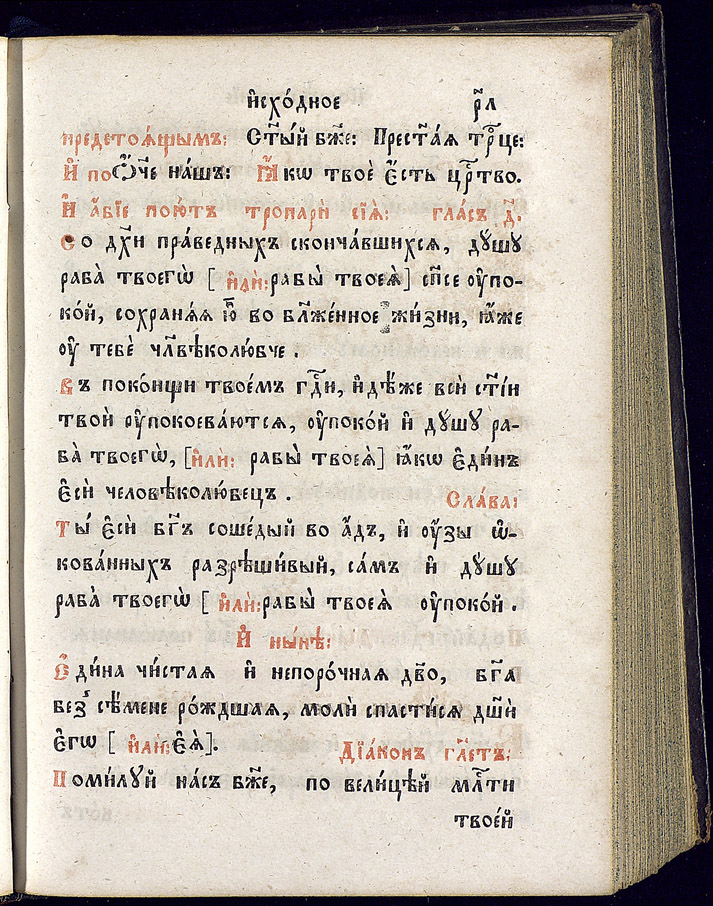 и҆схо́дное р҃л
предстоѧ́щымъ: Ст҃ы́й бж҃е: Прест҃а́ѧ трⷪ҇це:
И҆ по Ѻ҆́ч҃е на́шъ: Ꙗ҆́кѡ твоѐ є҆́сть црⷭ҇тво.
И҆ а҆́бїе пою́тъ тропарѝ сїѧ̑: гла́съ, д҃.
Со дꙋ́хи пра́ведныхъ сконча́вшихсѧ, дꙋ́шꙋ
раба̀ твоегѡ̀ [и҆лѝ: рабы̀ твоеѧ̀] сп҃се ᲂу҆по-
ко́й, сохранѧ́ѧ ю҆̀ во бл҃же́нное жи́зни, ꙗ҆́же
ᲂу҆ тебѐ чл҃вѣколю́бче.
Въ поко́ищи твое́мъ гдⷭ҇и, и҆дѣ́же всѝ ст҃і́и
твоѝ ᲂу҆покоева́ютсѧ, ᲂу҆поко́й и҆ дꙋ́шꙋ ра-
ба̀ твоегѡ̀, [и҆лѝ: рабы̀ твоеѧ̀] ꙗ҆́кѡ є҆ди́нъ
є҆сѝ человѣколю́бецъ. Сла́ва:
Ты́ є҆сѝ бг҃ъ соше́дый во а҆́дъ, и҆ ᲂу҆́зы ѡ҆-
кова́нныхъ разрѣши́вый, са́мъ и҆ дꙋ́шꙋ
раба̀ твоегѡ̀ [и҆лѝ: рабы̀ твоеѧ̀ ᲂу҆поко́й.
И҆ ны́нѣ:
Є҆ди́на чи́стаѧ и҆ непоро́чнаѧ дв҃о, бг҃а
без̾ сѣ́мене ро́ждшаѧ, молѝ спасти́сѧ дш҃ѝ
є҆гѡ̀ [и҆лѝ: є҆ѧ̀]. Дїа́конъ гл҃етъ:
Поми́лꙋй на́съ бж҃е, по вели́цѣй млⷭ҇ти
твое́й